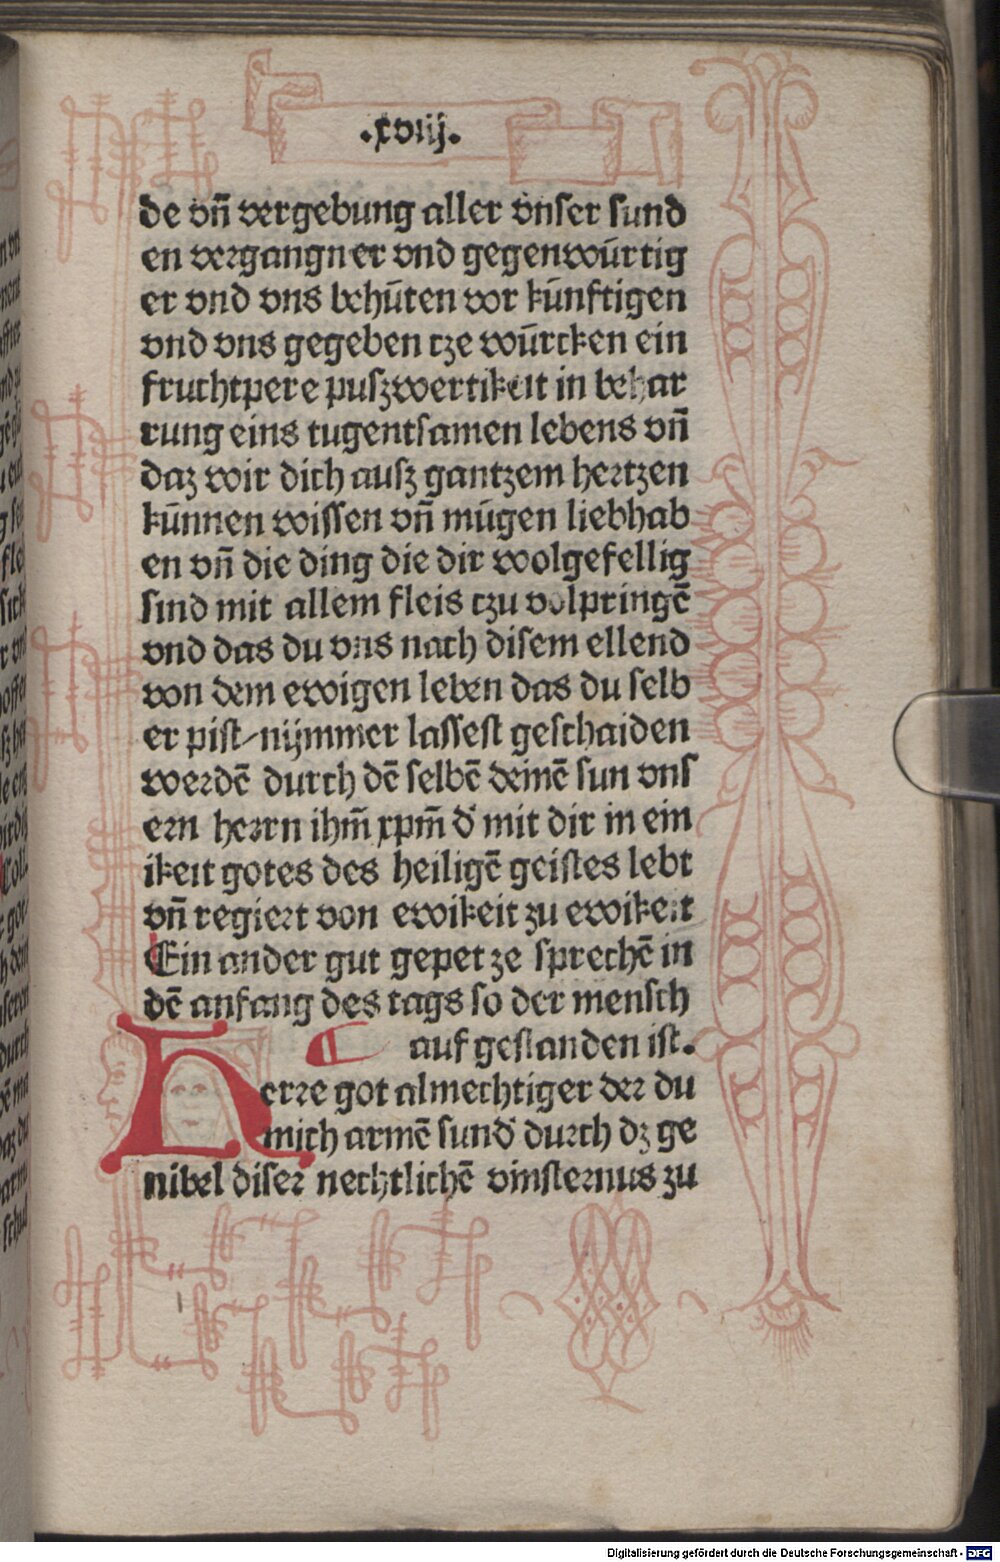 .xviij.
de vñ vergebung aller vnser sund
en vergangner vnd gegenwürtig
er vnd vns behüten vor künftigen
vnd vns gegeben tze würcken ein
fruchtpere puſzwertikeit in behar
rung eins tugentſamen lebens vñ
daz wir dich auſz gantzem hertzen
künnen wiſſen vñ mügen liebhab
en vñ die ding die dir wolgefellig
ſind mit allem fleis tzu volpringē
vnd das du vns nach diſem ellend
von dem ewigen leben das du ſelb
er piſt/nijmmer laſſeſt geſchaiden
werdē durch dē ſelbē deinē ſun vnſ
ern herrn ihm̄ xpm̄ d' mit dir in ein
ikeit gotes des heiligē geiſtes lebt
vñ regiert von ewikeit zu ewikeit
Ein ander gut gepet ze ſprechē in
dē anfang des tags ſo der menſch
auf geſtanden iſt.
Herre got almechtiger der du
mich armē ſund' durch dz ge
nibel diſer nechtlichē vinſternus zu
Digitalisierung gefördert durch die Deutsche Forschungsgemeinschaft - DFG